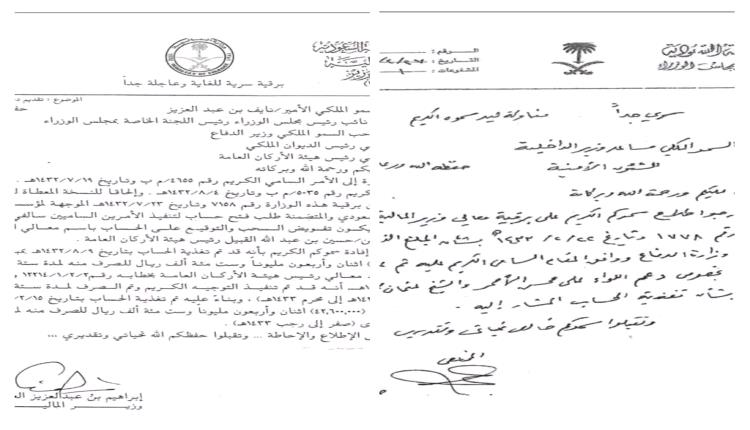 برقية سرية للغاية وعاجلة جداً
الموضوع : تقديم
سمو الملكي الأمير/نايف بن عبد العزيز
نائب رئيس مجلس الوزراء رئيس اللجنة الخاصة بمجلس الوزراء
حب السمو الملكي وزير الدفاع
ي رئيس الديوان الملكي
ي رئيس هيئة الأركان العامة
كم ورحمة الله وبركاته
ة إلى الأمر السامي الكريم رقم ٤٦٥٥/م ب وتاريخ ١٤٣٢/٧/١٩هـ
كريم رقم ٥٠٣٥/م ب وتاريخ ١٤٣٢/٨/٤هـ . وإلحاقاً للنسخة المعطاة
برقية هذه الوزارة رقم ٧١٥٨ وتاريخ ١٤٣٢/٧/٢٣هـ الموجهة لمؤسـ
عودي والمتضمنة طلب فتح حساب لتنفيذ الأمرين الساميين سالفي
يكون تفويض السحب والتوقيع على الحساب باسم معالي
ن/حسين بن عبد الله القبيل رئيس هيئة الأركان العامة .
إفادة سموكم الكريم بأنه قد تم تغذية الحساب بتاريخ ١٤٣٢/٨/٩هـ
) اثنان وأربعون مليوناً وست مئة ألف ريال للصرف منه لمدة ستة
. معالي رئيس هيئة الأركان العامة بخطابه رقم
هـ أنه قد تم تنفيذ التوجيه الكريم وتم الصرف لمدة ستة
إلى محرم ١٤٣٣هـ) ، وبناءً عليه تم تغذية الحساب بتاريخ
(٤٢,٦٠٠,٠٠٠) اثنان وأربعون مليوناً وست مئة ألف ريال للصرف منه
ى (صفر إلى رجب ١٤٣٣هـ) .
ل الإطلاع والإحاطة ... وتقبلوا حفظكم الله تحياتي وتقديري ...
إبراهيم بن عبدالعزيز
وزير المالية
الرقم :
التاريخ :
المشفوعات :
سري جداً مناولة ليد سموه الكريم
السمو الملكي مساعد وزير الداخلية
للشئون الأمنية حفظه الله ورعاه
عليكم ورحمة الله وبركاته
اطلاع سموكم الكريم على برقية معالي وزير المالية
رقم ١٧٧٨ وتاريخ ١٤٣٣/٢/٢٢هـ بشأن المبلغ
وزارة الدفاع ووافق المقام السامي الكريم عليه
بخصوص دعم اللواء علي محسن الأحمر والشيخ
بشأن تغذية الحساب المشار إليه .
وتقبلوا سموكم خالص تحياتي وتقديري